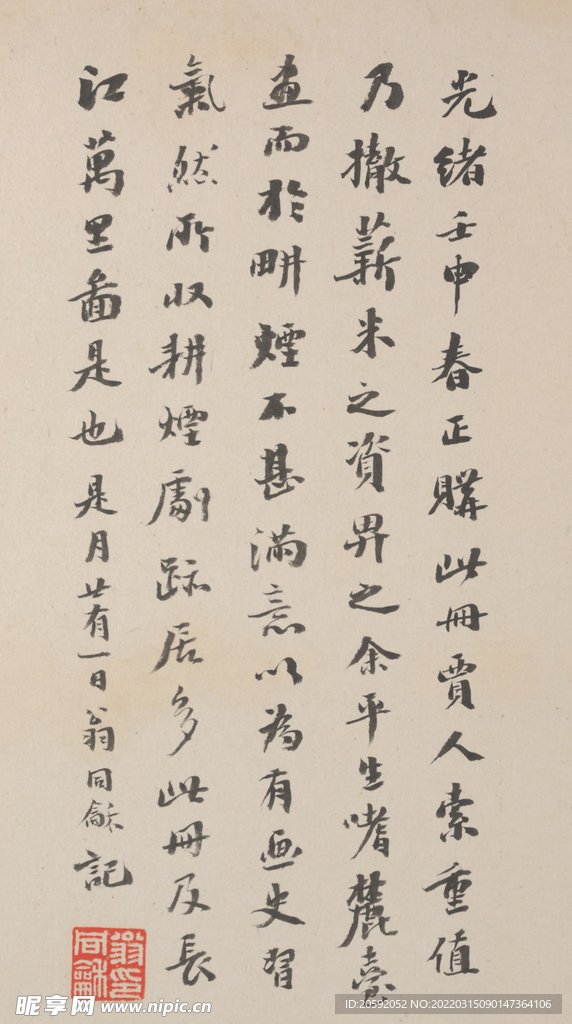 光緒壬申春正購此冊賈人索重值
乃撤薪米之資畀之余平生嗜麓臺
畫而於畊煙不甚滿意以為有画史習
氣然所収耕煙劇跡居多此冊及長
江萬里圖是也是月廿有一日翁同龢記
翁印同龢
昵享网 www.nipic.cn
ID:20592052 NO:20220315090147364106